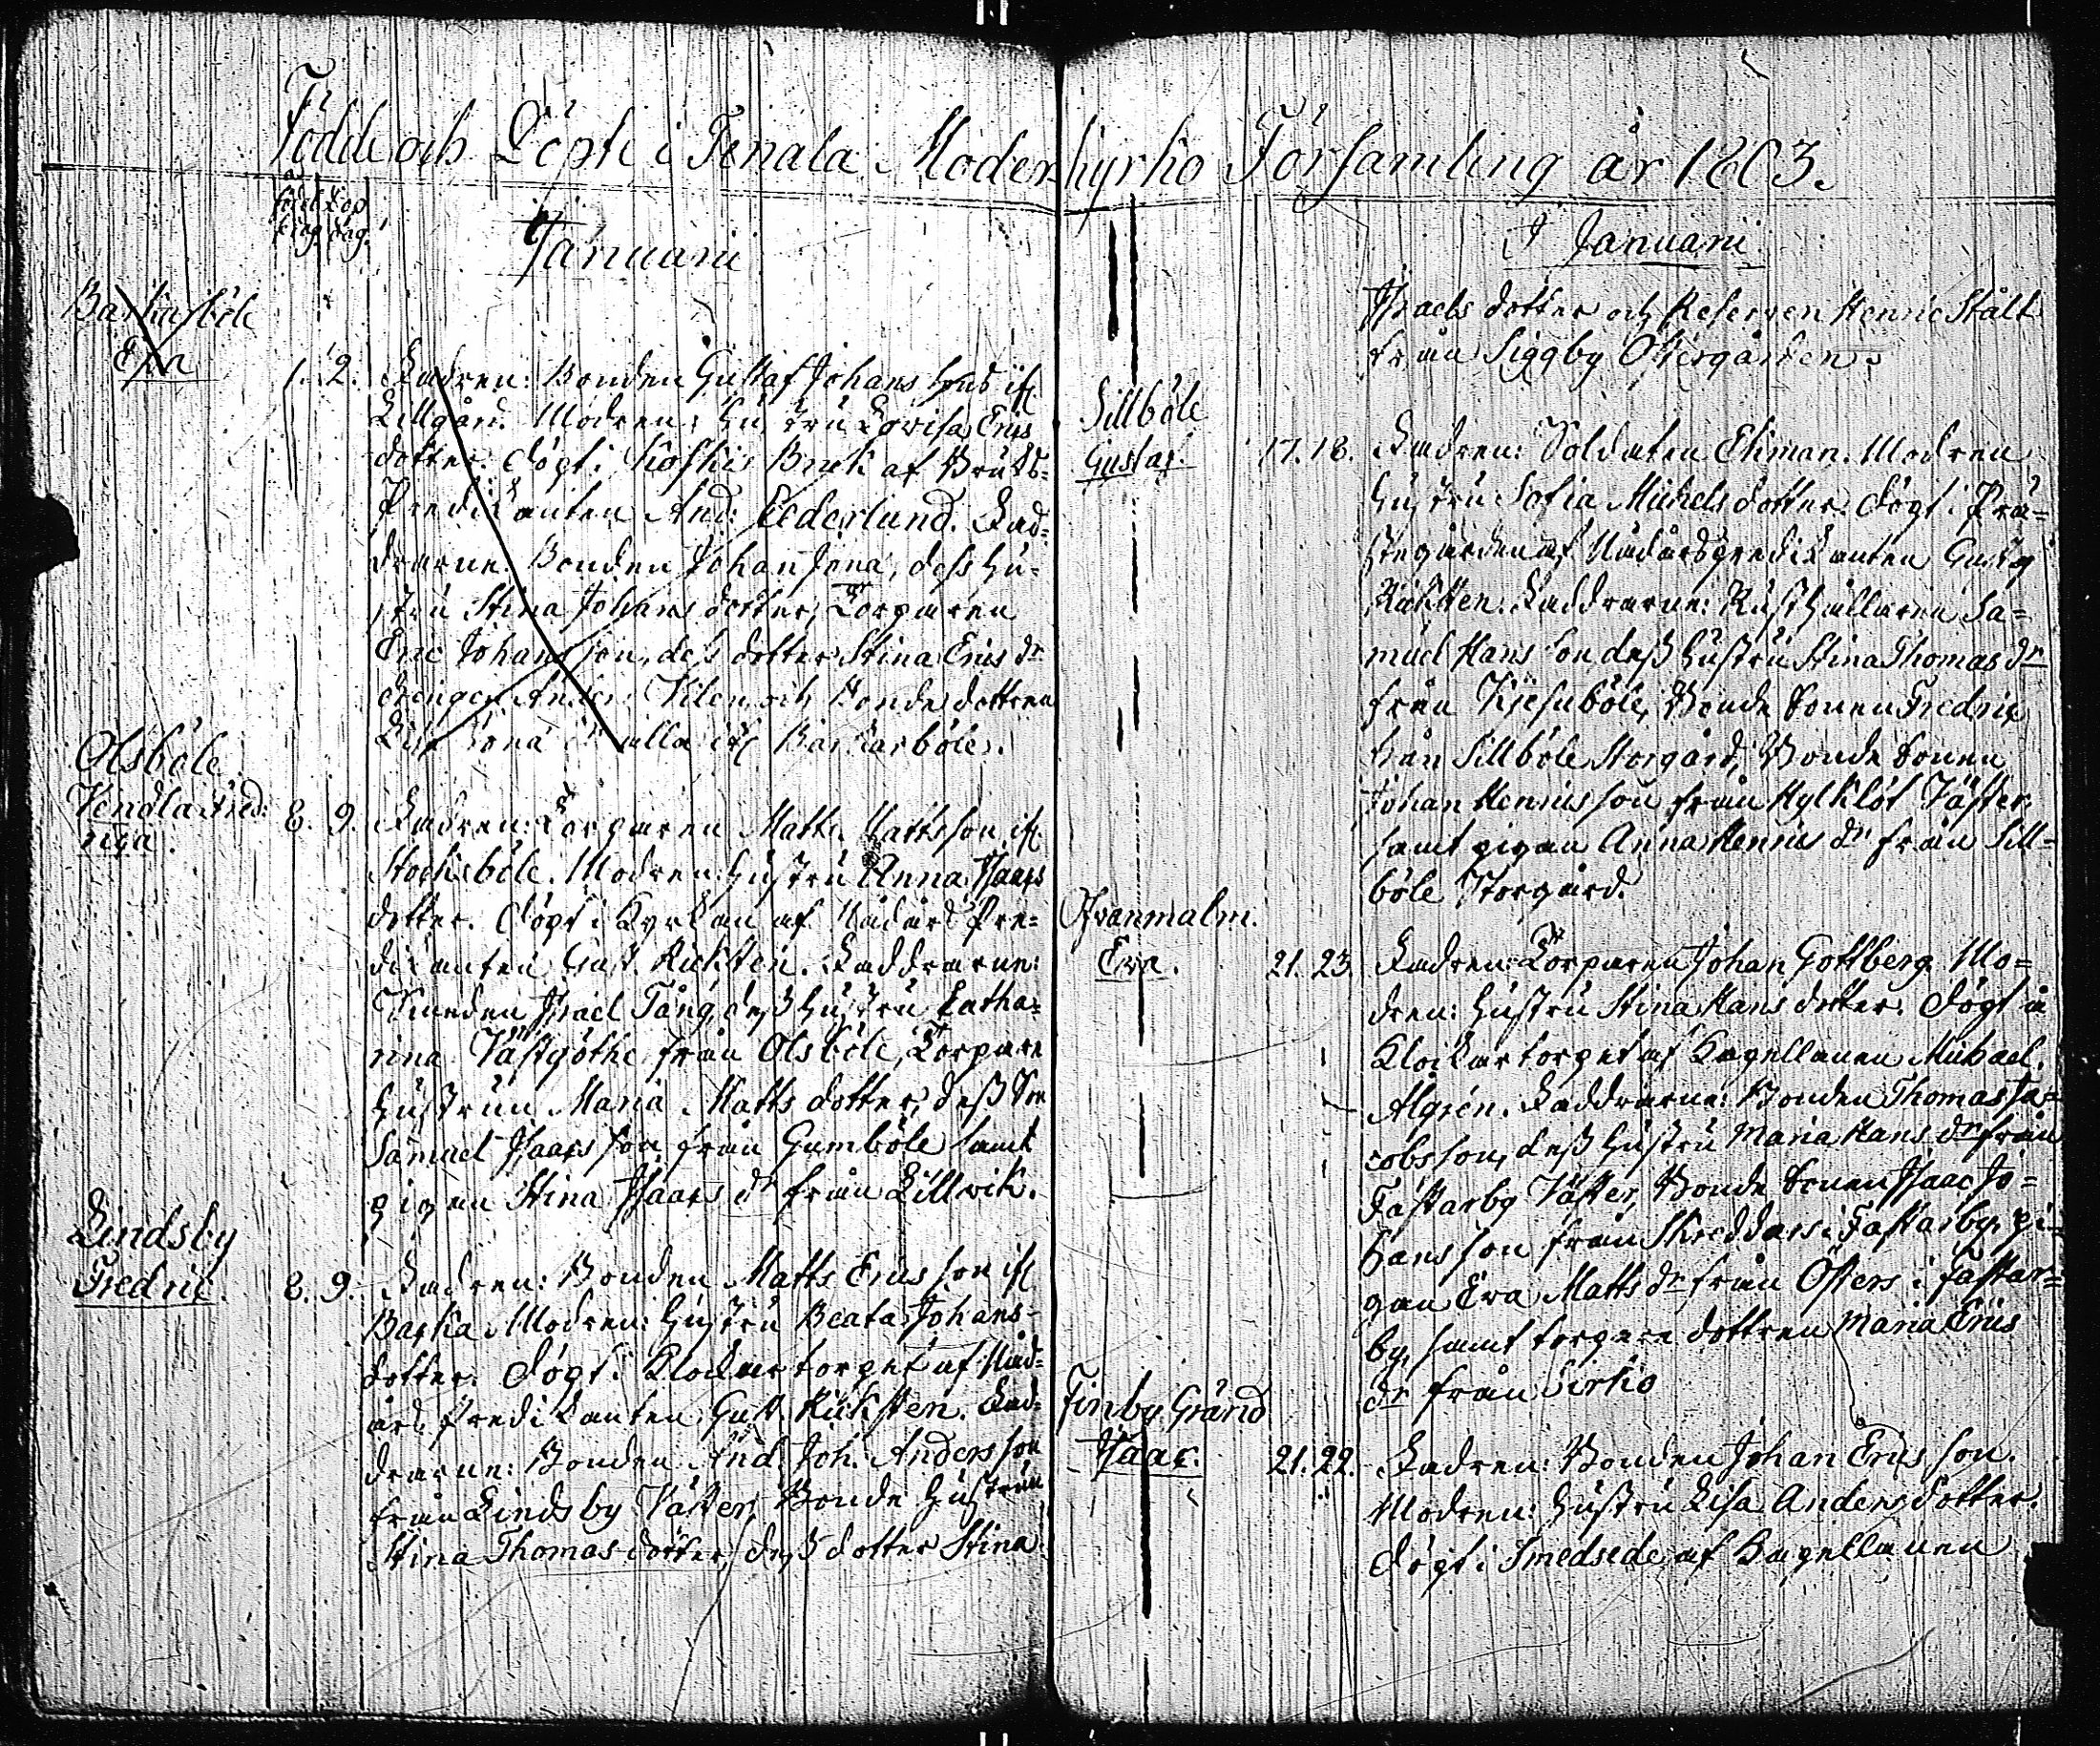 Födde och Döpte i Tenala Moderkyrko Församling år 1803.
föd. Döp
dag. dag.
Januarii
Barkarböle
Eva
1. 2. Fadren: Bonden Gustaf Johans son ifr.
Lillgård. Modren: Hustru Lovisa Erics
dotter. Döpt i Koskis Bruk af Bruks-
Predikanten And: Cederlund. Fad-
drarne: Bonden Johan Jöna, dess Hu-
stru Stina Johans dotter, Torparen
Eric Johansson, dess dotter Stina Erics dr
drengen Anders och Bonde dottren
Lisa alla ifr. Barkarböle.
Olsböle
Vendla Fred:
rica.
8. 9. Fadren: Torparen Matts Mattsson ifr.
Stocksböle. Modren: Hustru Anna Isaacs
dotter. Döpt i Kyrkan af Nådårs Pre-
dikanten Gust. Ricksten. Faddrarne:
Smeden Israel Tång, dess Hustru Catha-
rina Västgöthe från Olsböle, Torpare
Hustrun Maria Matts dotter, dess Son
Samuel Isaacs son från Gumböle samt
pigan Stina Isaacs dr från Lillwik.
Lindsby
Fredric.
8. 9. Fadren: Bonden Matts Erics son ifr
Backa. Modren: Hustru Beata Johans-
dotter. Döpt i Klockartorpet af Nåd-
års Predikanten Gust. Ricksten. Fad-
drarne: Bonden And. Joh. Andersson
från Lindsby Väster, Bonde Hustrun
Stina Thomas dotter, dess dotter Stina
I Januarii
Isaacs dotter och Reserven Henric Stålt
från Siggby Östergården.
Sillböle
Gustaf.
17. 18. Fadren: Soldaten Ekman. Modren
Hustru Sofia Michels dotter. Döpt i Prä-
stegården af Nådårspredikanten Gustaf
Ricksten. Faddrarne: Rusthållaren Sa-
muel Hans son dess Hustru Stina Thomas dr
från Kjesuböle, Bonde Sonen Fredric
från Sillböle Storgård, Bonde Sonen
Johan Henricsson från Kylklöt Väster,
samt pigan Anna Henrics dr från Sill-
böle Storgård.
Ofvanmalm.
Eva.
21. 23. Fadren: Torparen Johan Gottberg. Mo-
dren: Hustru Stina Hans dotter. Döpt i
Klockartorpet af Kapellanen Michael
Algren. Faddrarne: Bonden Thomas Ja-
cobsson, dess Hustru Maria Hans dr från
Fastarby Väster, Bonde Sonen Isaac Jo-
hansson från Skreddars i Fastarby, pi-
gan Eva Matts dr från Östers i Fastar-
by, samt torpare dottren Maria Erics
dr från Sirkio
Finby Gränd
Isaac.
21. 22. Fadren: Bonden Johan Erics son.
Modren: Hustru Lisa Anders dotter.
Döpt i Smedsede af Kapellanen